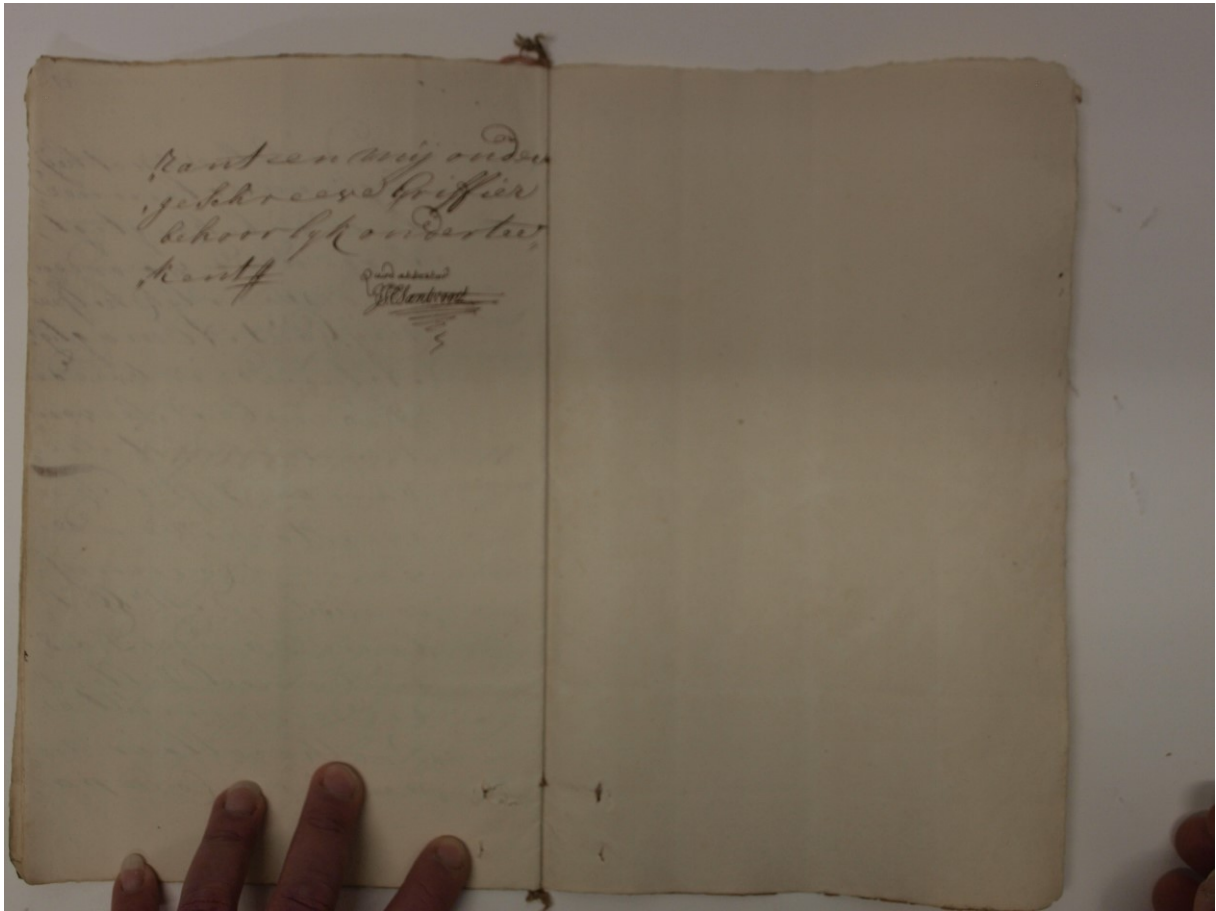 rant en en mij onder
geschreeve Griffier
behoorlyk ondertee
kent
quod attestor